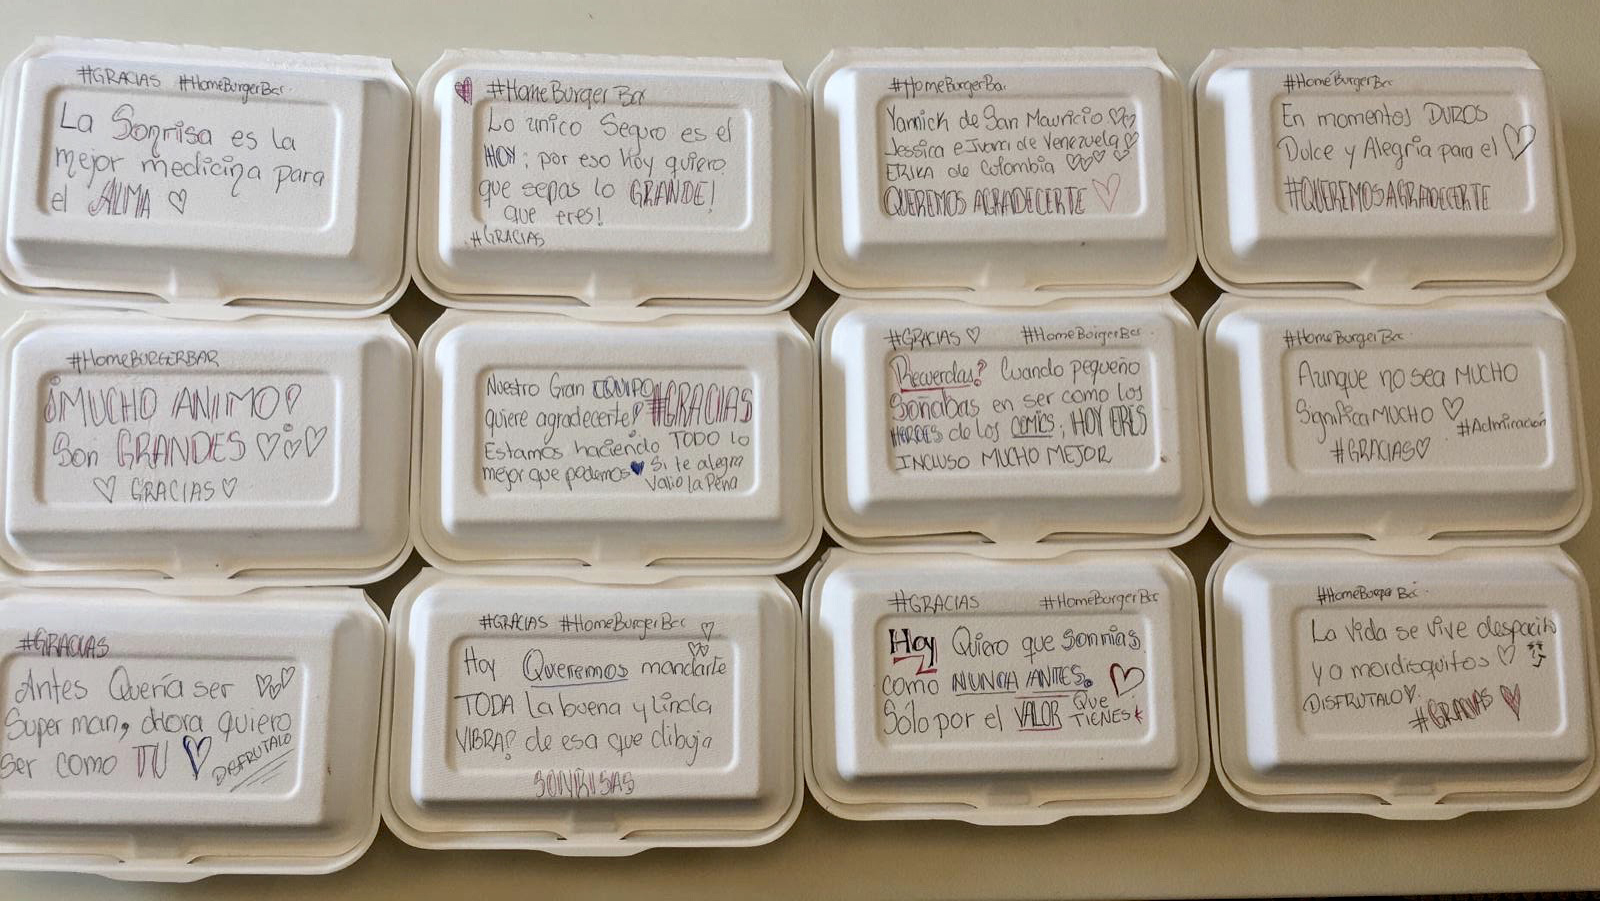 #GRACIAS #HomeBurgerBar
La Sonrisa es la
mejor medicina para
el ALMA
#HomeBurger Bar
Lo unico Seguro es el
HOY; por eso Hoy quiero
que sepas lo GRANDE!
que eres!
#GRACIAS
#HomeBurgerBar
Yannick de San Mauricio
Jessica e Ivora de Venezuela
ERIKA de Colombia
QUEREMOS AGRADECERTE
#HomeBurgerBar
En momentos DUROS
Dulce y Alegria para el
#QUEREMOSAGRADECERTE
#HomeBURGERBAR
¡MUCHO ANIMO!
Son GRANDES
GRACIAS
Nuestro Gran EQUIPO #GRACIAS
quiere agradecerte!
Estamos haciendo TODO lo
mejor que podemos Si te alegra
Valio la Pena
#GRACIAS #HomeBurgerBar
Recuerdas? Cuando pequeño
Soñabas en ser como los
HEROES de los COMICS; HOY ERES
INCLUSO MUCHO MEJOR
#HomeBurgerBar
Aunque no sea MUCHO
Significa MUCHO
#Admiración
#GRACIAS
#GRACIAS
Antes Quería ser
Super man, Ahora quiero
Ser como TU
DISFRUTALO
#GRACIAS #HomeBurgerBar
Hoy Queremos mandarte
TODA La buena y Linda
VIBRA? de esa que dibuja
SONRISAS
#GRACIAS #HomeBurgerBar
Hoy Quiero que Sonrias
como NUNCA ANTES.
Sólo por el VALOR QUE
TIENES
La Vida se vive despacito
y a mordisquitos
DISFRUTALO
#GRACIAS